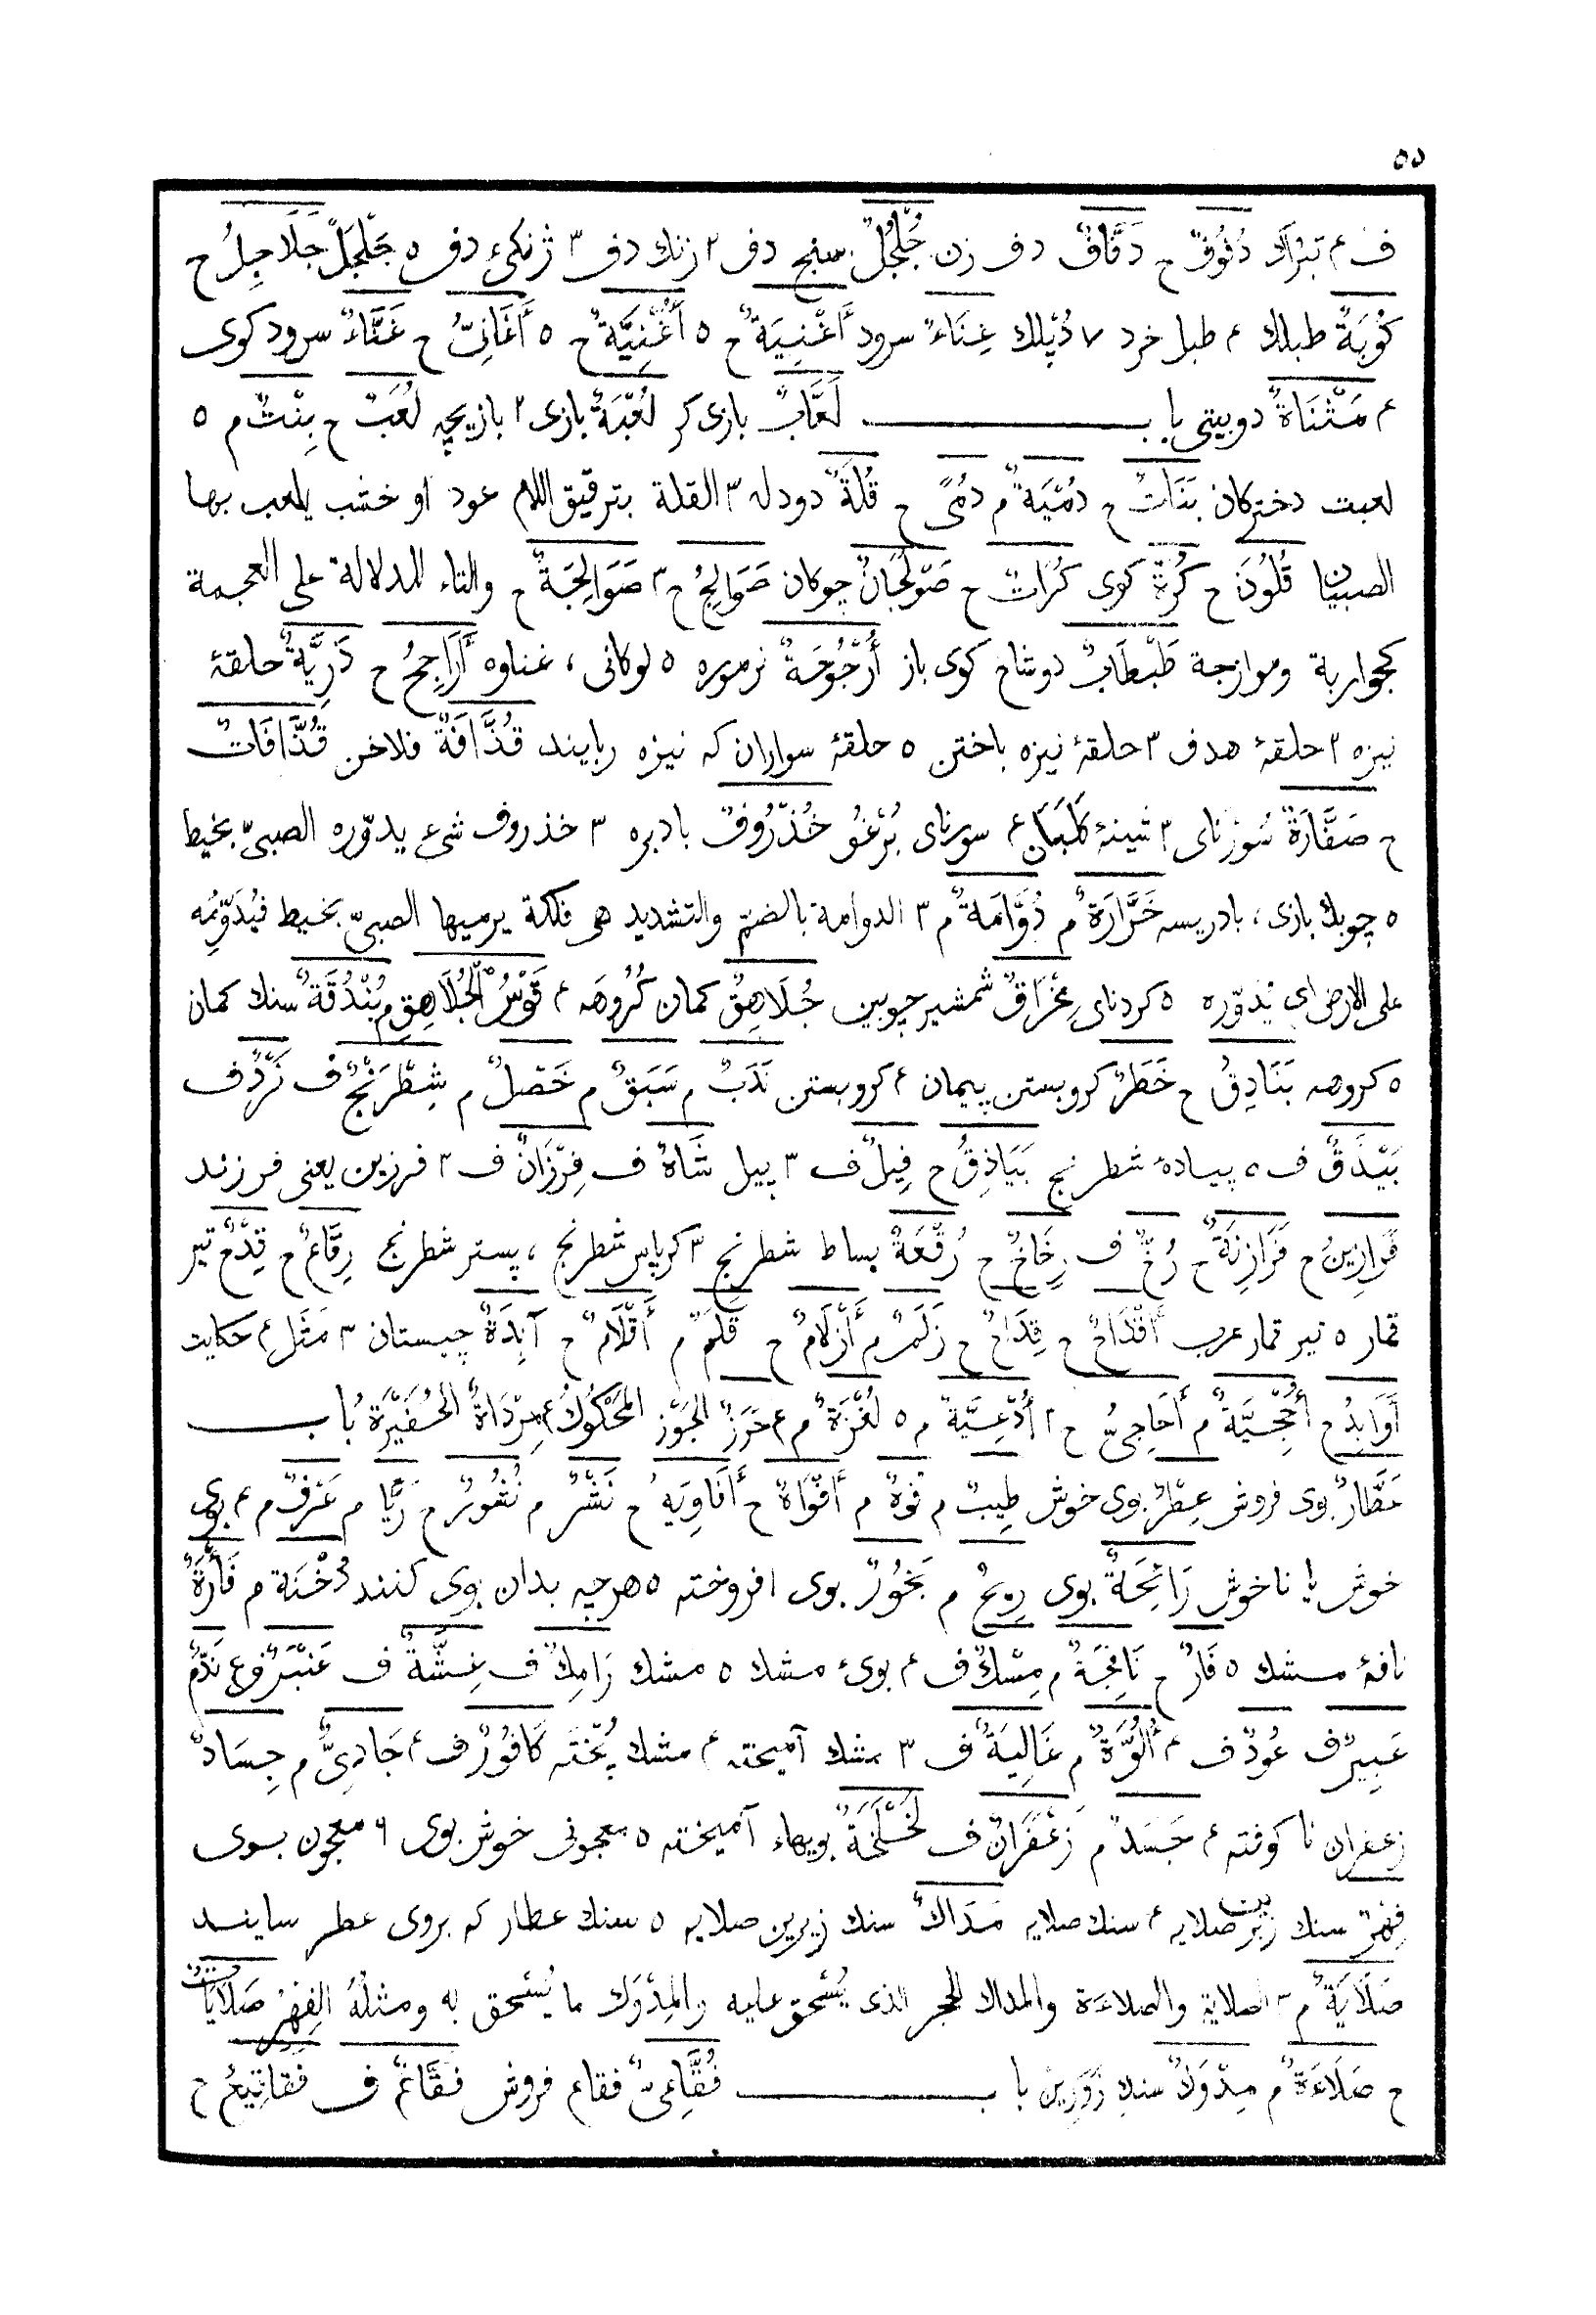 ٥٥
ف ۴ تبراک دُفُوفٌ ح دَفَّافٌ دف زن جُلْجُلٌ سنج دف ۲ زنك دف ۳ ژنكىء دف ٥ جَلْجَلٌ جَلَاجِلُ ح
كُوبَةٌ طبلك ۴ طبل خرد ٧ دُپْلك غِنَاءٌ سرود أُغْنِيَةٌ ح ٥ أُغْنِيَّةٌ ح ٥ أَغَانِىُّ ح غَنَّاءٌ سرود كوى
۴ مَثْنَاةٌ دوبيتى باب لَعَّابٌ بازى كر لُعْبَةٌ بازى ۲ بازيچه لُعَبٌ ح بِنْتٌ م ٥
لعبت دختركان بَنَاتٌ ح دُمْيَةٌ م دُمًى ح قُلَةٌ دودله ۳ القلة بترقيق اللام عود او خشب يلعب بها
الصبيان قُلُونَ ح كُرَةٌ كوى كُرَاتٌ ح صَوْلَجَانٌ چوكان صَوَالِجُ ح ۳ صَوَالِجَةٌ ح والتاء للدلالة على العجمة
كجواربة وموازجة طَبْطَابٌ دوشاخ كوى باز أُرْجُوحَةٌ نرموره ٥ لوكانى ، غناوه أَرَاجِحُ ح دَرِيَّةٌ حلقۀ
نيزه ۲ حلقۀ هدف ۳ حلقۀ نيزه باختن ٥ حلقۀ سواران كه نيزه ربايند قُذَّافَةٌ فلاخن قُذَّافَاتٌ
ح صَفَّارَةٌ سُورْناى ۳ شينۀ كَلَبَان ۴ سورناى بُرْغُو خُذْرُوفٌ بادبره ۳ خذروف شىء يدوّره الصبىّ بخيط
٥ چوبك بازى ، بادريسه خَرَّارَةٌ م دُوَّامَةٌ م ۳ الدوامة بالضمّ والتشديد هى فلكة يرميها الصبىّ بخيط فيُدَوِّمُه
على الارض اى يُدوّره ٥ كردناى مِخْرَاقٌ شمشير چوبين جُلَاهِقٌ كمان كُرُوهَه ۴ قَوْسُ الْجُلَاهِقِ م بُنْدُقَةٌ سنك كمان
٥ كروهه بَنَادِقُ ح خَطَرٌ كروبستن پيمان ۴ كروبستن نَدَبٌ م سَبَقٌ م خَصْلٌ م شِطْرَنْجٌ ف نَرْدٌ ف
بَيْذَقٌ ف ٥ پيادۀ شطرنج بَيَاذِقُ ح فِيلٌ ف ۳ پيل شَاهٌ ف فِرْزَانٌ ف ۲ فرزين يعنى فرزند
فَرَازِينُ ح فَرَازِنَةٌ ح رُخٌّ ف رِخَاخٌ ح رُقْعَةٌ بساط شطرنج ۳ كرپاس شطرنج ، پستر شطرنج رِقَاعٌ ح قِدْحٌ تير
قمار ٥ تير قمار عرب أَقْدَاحٌ ح قِدَاحٌ ح زَلَمٌ م أَزْلَامٌ ح قَلَمٌ م أَقْلَامٌ ح آبِدَةٌ چيستان ۳ مَثَل ۴ حكايت
أَوَابِدُ ح أُحْجِيَّةٌ م أَحَاجِىُّ ح ۲ أُدْعِيَّةٌ م ٥ لُغْزَةٌ م ۴ خَرَزُ الجَوْزِ المَحْكُوكُ ۴ مِرْدَاةٌ الحُفَيْرَةُ باب
عَطَّارٌ بوى فروش عِطْرٌ بوى خوش طِيبٌ م فُوهٌ م أَفْوَاهٌ ح أَفَاوِيَهُ ح نَشْرٌ م نُشُورٌ ح رَيَّا م عَرْفٌ م ۴ بوى
خوش يا ناخوش رَائِحَةٌ بوى رِيحٌ م بَخُورٌ بوى افروخته ٥ هرچه بدان بوى كنند دُخْنَة م فَأْرَةٌ
نافۀ مشك ٥ فَارٌ ح نَافِجَةٌ م مِسْكٌ ف ۴ بوىء مشك ٥ مشك رَامِكٌ ف غِسْلَةٌ ف عَنْبَرٌ ف ع نَدٌّ م
عَبِيرٌ ف عُودٌ ف ۴ أُلُوَّةٌ م غَالِيَةٌ ف ۳ مشك آميخته ۴ مشك پُخته كَافُورٌ ف ۴ جَادِىٌّ م جِسَادٌ
زعفران نا كوفته ۴ جَسَدٌ م زَعْفَرَانٌ ف لَخْلَخَةٌ بويهاء آميخته ٥ معجونى خوش بوى ٦ معجون بوى
فِهْرٌ سنك زبرين صلايه ۴ سنك صلايه مَدَاكٌ سنك زيرين صلايه ٥ سنك عطار كه بروى عطر سايند
صَلَايَةٌ م ۳ الصلاية والصلاءة والمداك الحجر الذى يُسْحق عليه والمِدْوَك ما يُسْحق به ومثلُهُ الفِهْرُ صَلَايَاتٌ
ح صَلَاءَةٌ م مِدْوَكٌ سنك زَوَرِين باب فُقَّاعِىٌّ فقاع فروش فُقَّاعٌ ف فَقَاقِيعُ ح